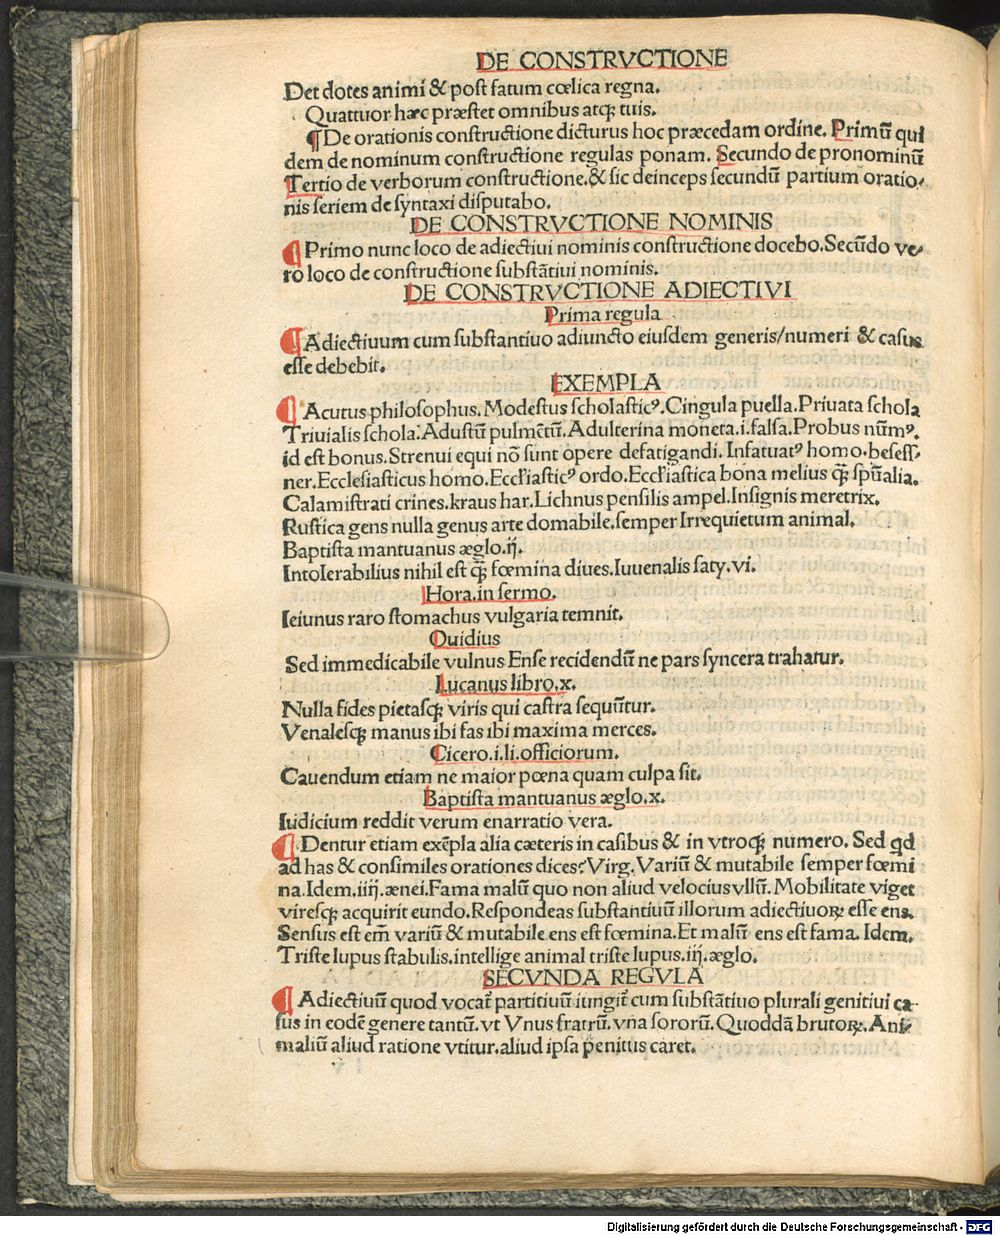 DE CONSTRVCTIONE
Det dotes animi & post fatum cœlica regna.
Quattuor hæc præstet omnibus atqꝫ tuis.
¶ De orationis constructione dicturus hoc præcedam ordine. Primū qui
dem de nominum constructione regulas ponam. Secundo de pronominū
Tertio de verborum constructione. & sic deinceps secundū partium oratio-
nis seriem de syntaxi disputabo.
DE CONSTRVCTIONE NOMINIS
¶ Primo nunc loco de adiectiui nominis constructione docebo. Secūdo ve-
ro loco de constructione substātiui nominis.
DE CONSTRVCTIONE ADIECTIVI
Prima regula
¶ Adiectiuum cum substantiuo adiuncto eiusdem generis/numeri & casus
esse debebit.
EXEMPLA
¶ Acutus philosophus. Modestus scholasticꝰ. Cingula puella. Priuata schola
Triuialis schola: Adustū pulmētū. Adulterina moneta .i. falsa. Probus nūmꝰ.
id est bonus. Strenui equi nō sunt opere defatigandi. Infatuatꝰ homo. besess-
ner. Ecclesiasticus homo. Eccl'iasticꝰ ordo. Eccl'iastica bona melius qꝫ̄ spūalia.
Calamistrati crines. kraus har. Lichnus pensilis ampel. Insignis meretrix.
Rustica gens nulla genus arte domabile. semper Irrequietum animal.
Baptista mantuanus æglo. ij.
Intolerabilius nihil est qꝫ̄ fœmina diues. Iuuenalis saty. vi.
Hora. in sermo.
Ieiunus raro stomachus vulgaria temnit.
Ouidius
Sed immedicabile vulnus Ense recidendū ne pars syncera trahatur.
Lucanus libro. x.
Nulla fides pietasqꝫ viris qui castra sequūtur.
Venalesqꝫ manus ibi fas ibi maxima merces.
Cicero. i. li. officiorum.
Cauendum etiam ne maior pœna quam culpa sit.
Baptista mantuanus æglo. x.
Iudicium reddit verum enarratio vera.
¶ Dentur etiam exēpla alia cæteris in casibus & in vtroqꝫ numero. Sed qd
ad has & consimiles orationes dices? Virg. Variū & mutabile semper fœmi
na. Idem. iiij. ænei. Fama malū quo non aliud velocius vllū. Mobilitate viget
viresqꝫ acquirit eundo. Respondeas substantiuū illorum adiectiuoꝝ esse ens.
Sensus est em̄ variū & mutabile ens est fœmina. Et malū ens est fama. Idem.
Triste lupus stabulis. intellige animal triste lupus. iij. æglo.
SECVNDA REGVLA
¶ Adiectiuū quod vocat̄ partitiuū iungit̄ cum substātiuo plurali genitiui ca-
sus in eodē genere tantū. vt Vnus fratrū. vna sororū. Quoddā brutoꝝ. Ani-
maliū aliud ratione vtitur. aliud ipsa penitus caret.
Digitalisierung gefördert durch die Deutsche Forschungsgemeinschaft - DFG